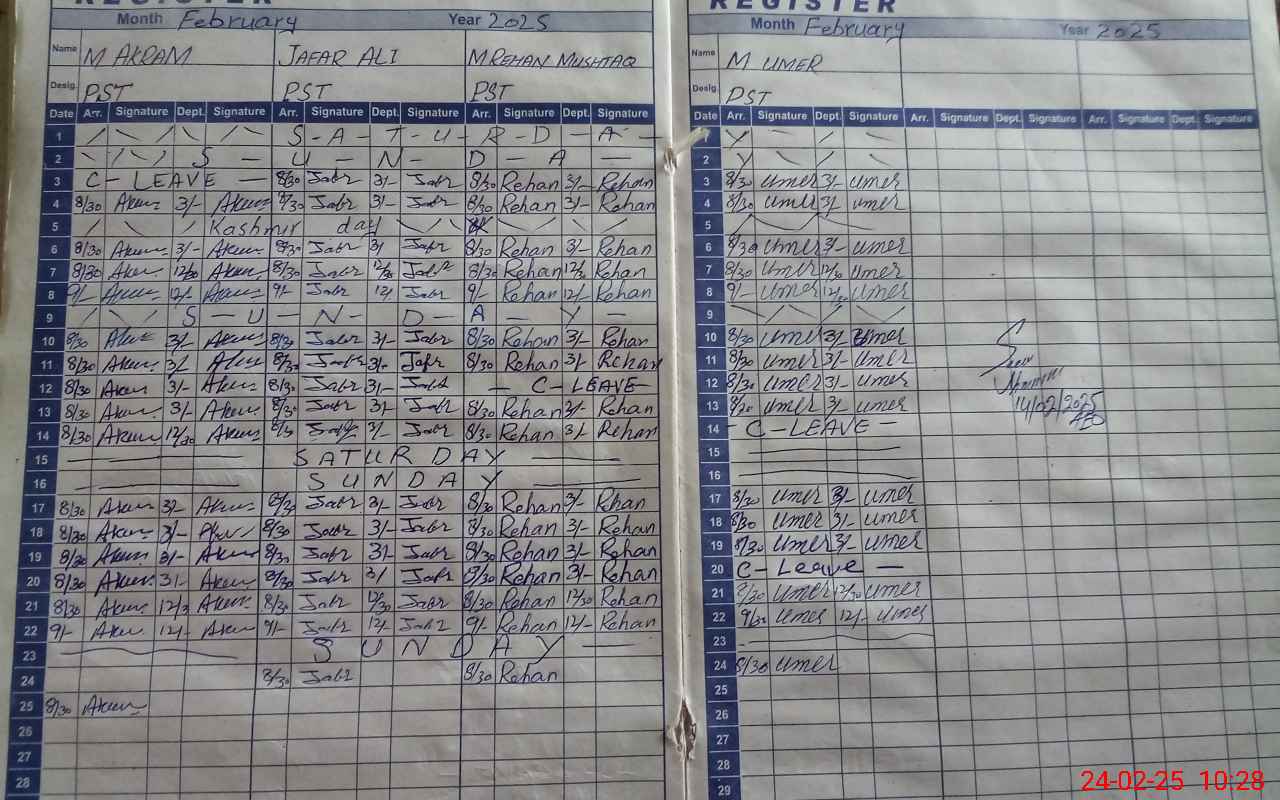 REGISTER
Month February Year 2025
Name M AKRAM JAFAR ALI M REHAN MUSHTAQ
Desig. PST PST PST
Date Arr. Signature Dept. Signature Arr. Signature Dept. Signature Arr. Signature Dept. Signature
1 S-A-T-U-R-D-A-
2 S-U-N-D-A-
3 C-LEAVE 8/30 3/- 8/30 Rehan 3/- Rehan
4 8/30 Akram 3/- Akram 8/30 3/- 8/30 Rehan 3/- Rehan
5 Kashmir day
6 8/30 Akram 3/- Akram 8/30 3/ 8/30 Rehan 3/- Rehan
7 8/30 Akram 12/30 Akram 8/30 12/30 8/30 Rehan 12/30 Rehan
8 9/- Akram 12/- Akram 9/- 12/ 9/- Rehan 12/- Rehan
9 S-U-N-D-A-Y-
10 8/30 3/- Akram 8/30 3/- 8/30 Rehan 3/- Rehan
11 8/30 Akram 3/- 8/30 3/- 8/30 Rehan 3/- Rehan
12 8/30 Akram 3/- Akram 8/30 3/- C-LEAVE-
13 8/30 Akram 3/- Akram 8/30 3/- 8/30 Rehan 3/- Rehan
14 8/30 Akram 12/30 Akram 8/30 3/- 8/30 Rehan 3/- Rehan
15 SATURDAY
16 SUNDAY
17 8/30 Akram 3/- Akram 8/30 3/- 8/30 Rehan 3/- Rehan
18 8/30 Akram 3/- 8/30 3/- 8/30 Rehan 3/- Rehan
19 8/30 Akram 3/- Akram 8/30 3/- 8/30 Rehan 3/- Rehan
20 8/30 Akram 3/- Akram 8/30 3/ 8/30 Rehan 3/- Rehan
21 8/30 Akram 12/3 Akram 8/30 12/30 8/30 Rehan 12/30 Rehan
22 9/- Akram 12/- Akram 9/- 12/- 9/- Rehan 12/- Rehan
23 SUNDAY
24 8/30 8/30 Rehan
25 8/30 Akram
26
27
28
REGISTER
Month February Year 2025
Name M UMER
Desig. PST
Date Arr. Signature Dept. Signature Arr. Signature Dept. Signature Arr. Signature Dept. Signature
1
2
3 8/30 umer 3/- umer
4 8/30 umer 3/- umer
5
6 8/30 umer 3/- umer
7 8/30 umer 12/30 umer
8 9/- umer 12/30 umer
9
10 8/30 umer 3/- umer
11 8/30 umer 3/- umer
12 8/30 umer 3/- umer
13 8/30 umer 3/- umer
14/02/2025
14 - C-LEAVE -
15
16
17 8/30 umer 3/- umer
18 8/30 umer 3/- umer
19 8/30 umer 3/- umer
20 C-Leave -
21 8/30 umer 12/30 umer
22 9/30 umer 12/- umer
23
24 8/30 umer
25
26
27
28
29
24-02-25 10:28